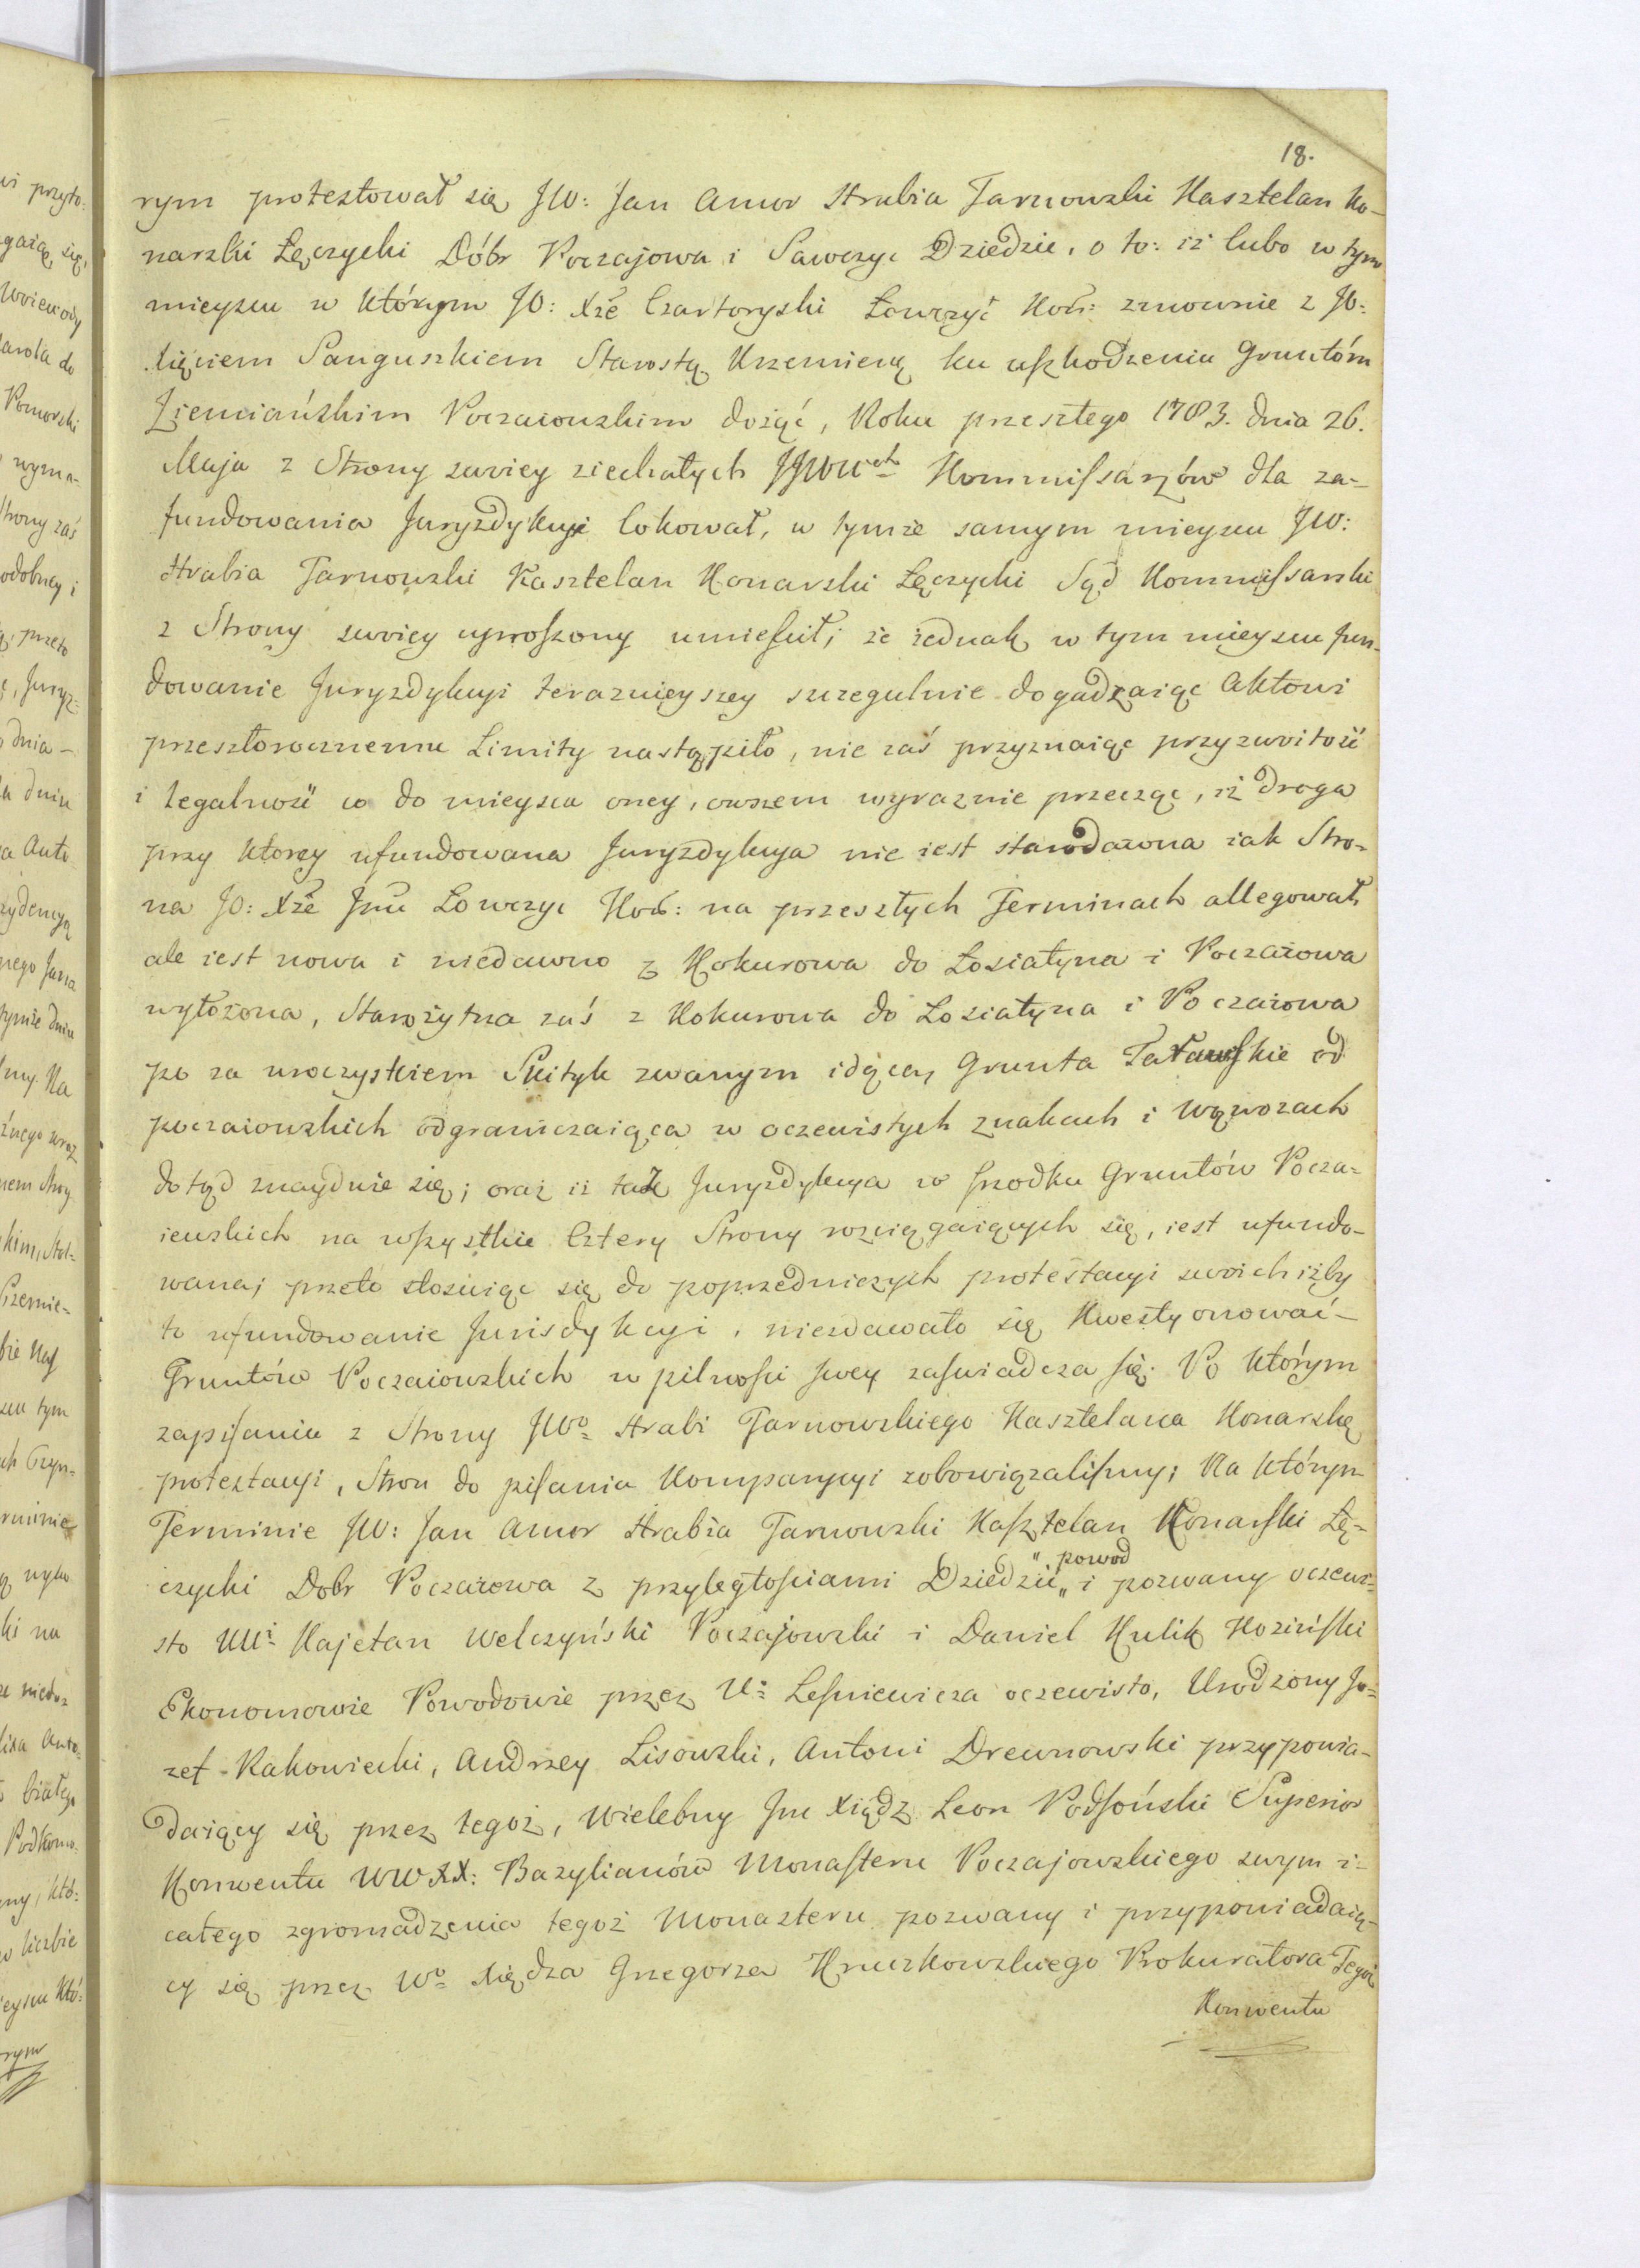 18.
rym protestował się JW: Jan Amor Hrabia Tarnowski Kasztelan Ko-
narski Łęczycki Dóbr Poczajowa i Sawczyc Dziedzic, o to: iż lubo w tym
mieyscu w którym JO: Xże Czartoryski Łowczyć Kor: zmownie z JO:
Xięciem Sanguszkiem Starostą Krzemienę ku uszkodzeniu Gruntóm
Ziemiańskim Poczaiowskim dożąć, Roku przeszłego 1783. dnia 26.
Maja z Strony swoiey ziechałych JJWWch Kommissarzów dla za-
fundowania Juryzdykcyi lokował, w tymże samym mieyscu JW:
Hrabia Tarnowski Kasztelan Konarski Łęczycki Sąd Kommissarski
z Strony swoiey uproszony umieścił; że iednak w tym mieyscu fun-
dowanie Juryzdykcyi teraznieyszey szczegulnie dogadzaiąc Aktowi
przeszłorocznemu Limity nastąpiło, nie zaś przyznaiąc przyzwoitość
i legalność co do mieysca oney, owszem wyraznie przecząc, iż droga
przy ktorey ufundowana Juryzdykcya nie iest starodawna iak Stro-
na JO: Xże Jmć Łowczyc Kor: na przeszłych Terminach allegował,
ale iest nowa i niedawno z Kokurowa do Łosiatyna i Poczaiowa
wyłożona, Starożytna zaś z Kokurowa do Łosiatyna i Poczaiowa
po za uroczyskiem Skityk zwanym idącey Grunta od
poczaiowskich odgraniczaiąca w oczewistych znakach i wąwozach
dotąd znayduie się; oraz iż taż Juryzdykcya w srzodku Gruntów Pocza-
iewskich na wszystkie Cztery Strony rozciągaiących się, iest ufundo-
wana; przeto stosuiąc się do poprzedniczych protestacyi swoich iżby
to ufundowanie Jurisdykcyi, niezdawało się Kwestyonować-
Gruntów Poczaiowskich w pilności swey zaświadcza się. Po którym
zapisaniu z Strony JWo Hrabi Tarnowskiego Kasztelana Konarskę
protestacyi, Stron do pisania Komparycyi zobowiązaliśmy; Na którym
Terminie JW: Jan Amor Hrabia Tarnowski Kasztelan Konarski Łę-
czycki Dobr Poczaiowa z przyległościami Dziedzić „ powod „ i pozwany oczewi-
sto UUi Kajetan Welczyński Poczajowski i Daniel Kulik Koziński
Ekonomowie Powodowie przez Uo Leśniewicza oczewisto, Urodzony Jo-
zef Rakowiecki, Andrzey Lisowski, Antoni Drewnowski przypowia-
daiący się przez tegoż, Wielebny Jmć Xiądz Leon Podsoński Superior
Konwentu WWXX: Bazylianów Monasteru Poczajowskiego swym i-
całego zgromadzenia tegoż Monasteru pozwany i przypowiadaią-
cy się przez Wo Xiędza Grzegorza Kruszkowskiego Prokuratora Tegoż
Konwentu